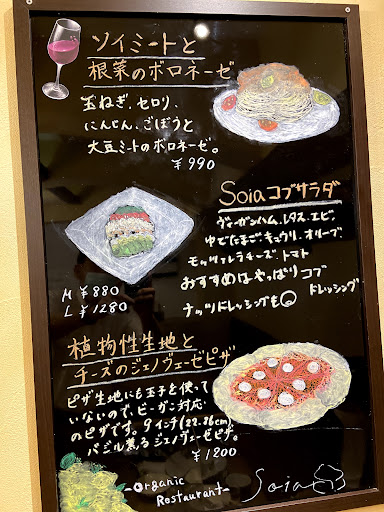 ソイミートと
根菜のボロネーゼ
玉ねぎ、セロリ、
にんじん、ごぼうと
大豆ミートのボロネーゼ。
¥990
Soiaコブサラダ
ヴィーガンハム、レタス、エビ、
ゆでたまご、キュウリ、オリーブ
モッツァレラチーズ、トマト
おすすめはやっぱりコブ
ドレッシング
ナッツドレッシングも◎
M ¥880
L ¥1280
植物性生地と
チーズのジェノヴェーゼピザ
ピザ生地にも玉子を使って
いないので、ビーガン対応
のピザです。9インチ(22.86cm)。
バジル薫るジェノヴェーゼピザ。
¥1200
-Organic
Restaurant-
Soia